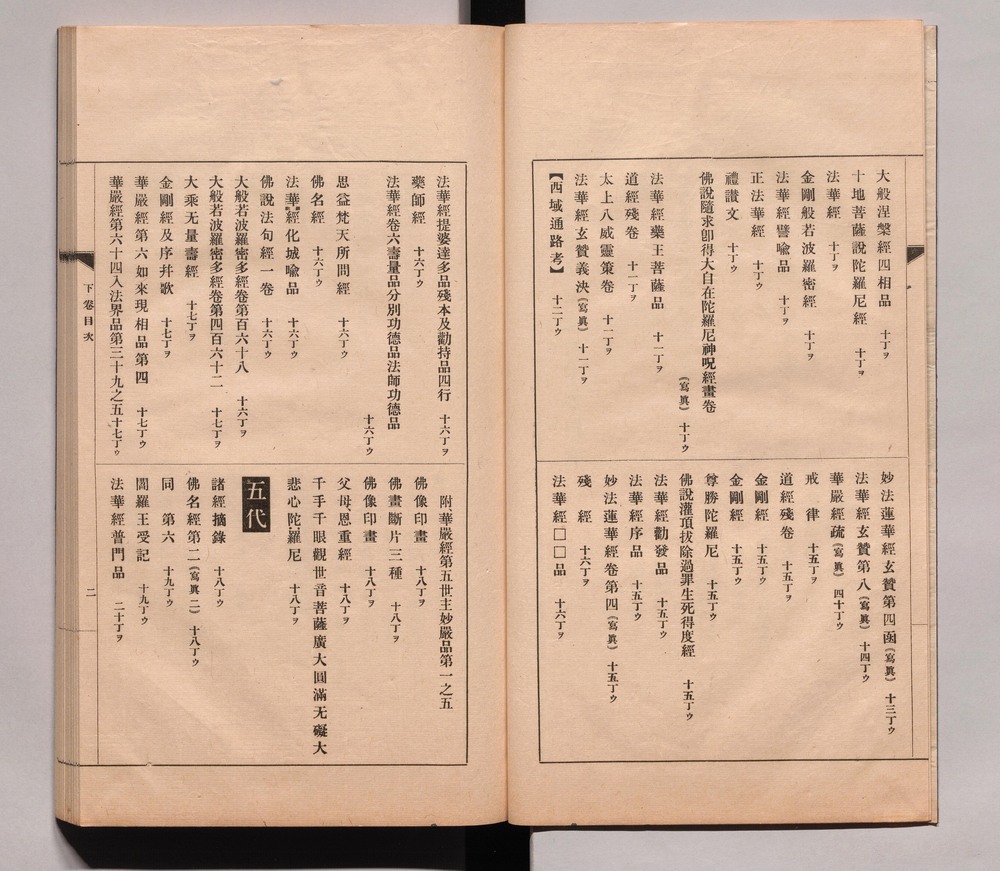 大般涅槃經四相品 十丁ヲ
十地菩薩說陀羅尼經 十丁ヲ
法華經 十丁ヲ
金剛般若波羅密經 十丁ヲ
法華經譬喩品 十丁ヲ
正法華經 十丁ゥ
禮讃文 十丁ゥ
佛說隨求卽得大自在陀羅尼神呪經畫卷
(寫眞) 十丁ゥ
法華經藥王菩薩品 十一丁ヲ
道經殘卷 十一丁ヲ
太上八威靈策卷 十一丁ヲ
法華經玄贊義決(寫眞) 十一丁ヲ
【西域通路考】 十二丁ゥ
妙法蓮華經玄贊第四函(寫眞) 十三丁ゥ
法華經玄贊第八(寫眞) 十四丁ゥ
華嚴經疏(寫眞) 四十丁ゥ
戒律 十五丁ヲ
道經殘卷 十五丁ヲ
金剛經 十五丁ゥ
金剛經 十五丁ゥ
尊勝陀羅尼 十五丁ゥ
佛說灌頂拔除過罪生死得度經 十五丁ゥ
法華經勸發品 十五丁ゥ
法華經序品 十五丁ゥ
妙法蓮華經卷第四(寫眞) 十五丁ゥ
殘經 十六丁ヲ
法華經□□品 十六丁ヲ
法華經提婆達多品殘本及勸持品四行 十六丁ヲ
藥師經 十六丁ゥ
法華經卷六壽量品分別功德品法師功德品
十六丁ゥ
思益梵天所問經 十六丁ゥ
佛名經 十六丁ゥ
法華經化城喩品 十六丁ゥ
佛說法句經一卷 十六丁ゥ
大般若波羅密多經卷第百六十八 十六丁ヲ
大般若波羅密多經卷第四百六十二 十七丁ヲ
大乘无量壽經 十七丁ヲ
金剛經及序幷歌 十七丁ヲ
華嚴經第六如來現相品第四 十七丁ゥ
華嚴經第六十四入法界品第三十九之五 十七丁ゥ
附華嚴經第五世主妙嚴品第一之五
佛像印畫 十八丁ヲ
佛畫斷片三種 十八丁ヲ
佛像印畫 十八丁ヲ
父母恩重經 十八丁ヲ
千手千眼觀世音菩薩廣大圓滿无礙大
悲心陀羅尼 十八丁ヲ
五代
諸經摘錄 十八丁ゥ
佛名經第二(寫眞二) 十八丁ゥ
同 第六 十九丁ゥ
閻羅王受記 十九丁ゥ
法華經普門品 二十丁ヲ
下卷目次
二